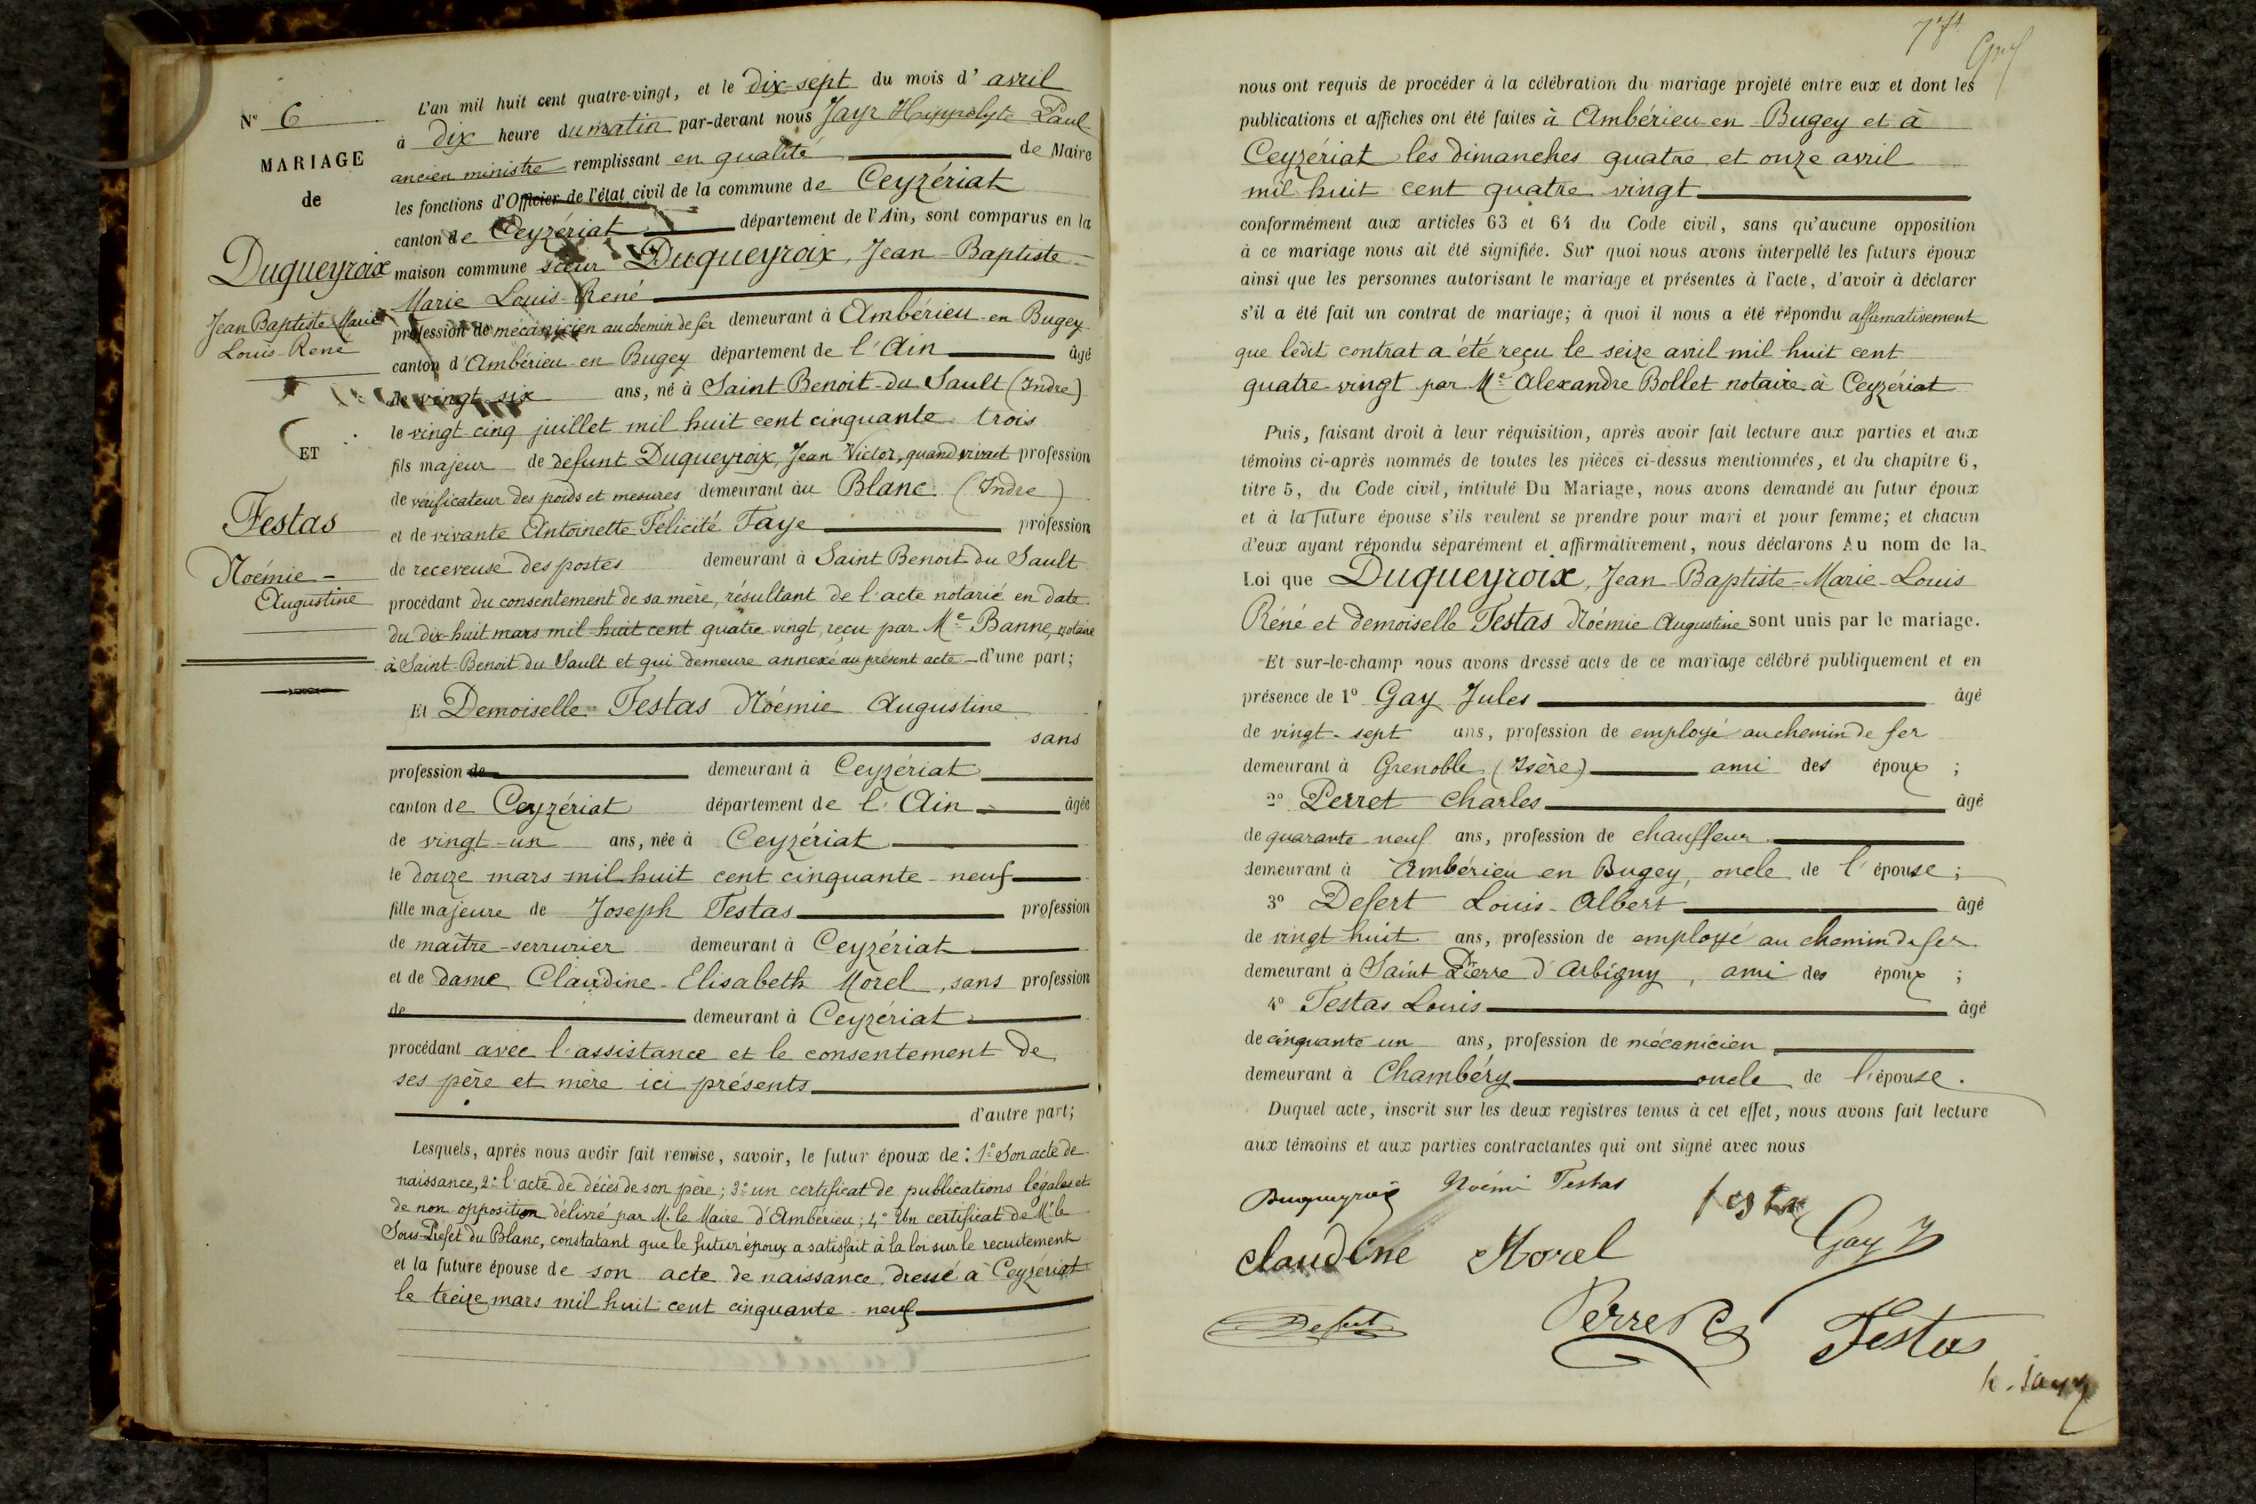 N° 6
MARIAGE
de
Duqueyroix
Jean Baptiste Marie
Louis René
ET
Festas
Noémie -
Augustine
L'an mil huit cent quatre-vingt, et le dix-sept du mois d'avril
à dix heure du matin par-devant nous Jayr Hippolyte Paul
ancien ministre remplissant en qualité de Maire
les fonctions d'Officier de l'état civil de la commune de Ceyzériat
canton de Ceyzériat département de l'Ain, sont comparus en la
maison commune sieur Duqueyroix, Jean-Baptiste-
Marie Louis-René
profession de mécanicien au chemin de fer demeurant à Ambérieu-en Bugey
canton d'Ambérieu-en Bugey département de l'Ain âgé
de vingt-six ans, né à Saint Benoit-du Sault (Indre)
le vingt-cinq juillet mil huit cent cinquante-trois
fils majeur de defunt Duqueyroix, Jean Victor, quand vivait profession
de vérificateur des poids et mesures demeurant au Blanc (Indre)
et de vivante Antoinette Félicité Faye profession
de receveuse des postes demeurant à Saint Benoit du Sault
procédant du consentement de sa mère, résultant de l'acte notarié en date
du dix-huit mars mil-huit cent quatre-vingt, reçu par Me Banne, notaire
à Saint-Benoit du Sault et qui demeure annexé au présent acte - d'une part;
Et Demoiselle Festas Noémie Augustine
sans
profession de demeurant à Ceyzériat
canton de Ceyzériat département de l'Ain âgée
de vingt-un ans, née à Ceyzériat
le douze mars mil huit cent cinquante-neuf
fille majeure de Joseph Festas profession
de maître-serrurier demeurant à Ceyzériat
et de dame Claudine-Elisabeth Morel, sans profession
de demeurant à Ceyzériat
procédant avec l'assistance et le consentement de
ses père et mère ici présents
d'autre part;
Lesquels, après nous avoir fait remise, savoir, le futur époux de : 1° Son acte de
naissance, 2° l'acte de décès de son père; 3° un certificat de publications légales et
de non opposition délivré par M. le Maire d'Ambérieu; 4° Un certificat de Mr le
Sous-Préfet du Blanc, constatant que le futur époux a satisfait à la loi sur le recrutement
et la future épouse de son acte de naissance, dressé à Ceyzériat
le treize mars mil huit cent cinquante-neuf
nous ont requis de procéder à la célébration du mariage projeté entre eux et dont les
publications et affiches ont été faites à Ambérieu-en-Bugey et à
Ceyzériat les dimanches quatre et onze avril
mil huit cent quatre vingt
conformément aux articles 63 et 64 du Code civil, sans qu'aucune opposition
à ce mariage nous ait été signifiée. Sur quoi nous avons interpellé les futurs époux
ainsi que les personnes autorisant le mariage et présentes à l'acte, d'avoir à déclarer
s'il a été fait un contrat de mariage; à quoi il nous a été répondu affirmativement
que ledit contrat a été reçu le seize avril mil huit cent
quatre-vingt par Me Alexandre Bollet notaire à Ceyzériat
Puis, faisant droit à leur réquisition, après avoir fait lecture aux parties et aux
témoins ci-après nommés de toutes les pièces ci-dessus mentionnées, et du chapitre 6,
titre 5, du Code civil, intitulé Du Mariage, nous avons demandé au futur époux
et à la future épouse s'ils veulent se prendre pour mari et pour femme; et chacun
d'eux ayant répondu séparément et affirmativement, nous déclarons Au nom de la
Loi que Duqueyroix, Jean-Baptiste-Marie-Louis
Réné et demoiselle Festas Noémie Augustine sont unis par le mariage.
Et sur-le-champ nous avons dressé acte de ce mariage célébré publiquement et en
présence de 1° Gay Jules âgé
de vingt-sept ans, profession de employé au chemin de fer
demeurant à Grenoble (Isère) ami des époux ;
2° Perret Charles âgé
de quarante-neuf ans, profession de chauffeur
demeurant à Ambérieu en Bugey, oncle de l'épouse ;
3° Defert Louis-Albert âgé
de vingt huit ans, profession de employé au chemin de fer
demeurant à Saint Pierre d'Arbigny, ami des époux ;
4° Festas Louis âgé
de cinquante-un ans, profession de mécanicien
demeurant à Chambéry oncle de l'épouse.
Duquel acte, inscrit sur les deux registres tenus à cet effet, nous avons fait lecture
aux témoins et aux parties contractantes qui ont signé avec nous
Duqueyroix Noémi Festas festas
Claudine Morel Gay J
Defert Perret C Festas
h. Jayr